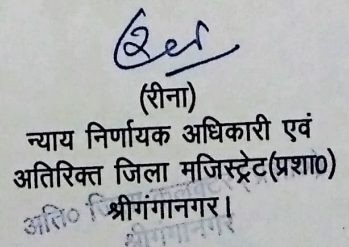 (रीना)
न्याय निर्णायक अधिकारी एवं
अतिरिक्त जिला मजिस्ट्रेट(प्रशा0)
श्रीगंगानगर।
अति०
श्रीगंगानगर